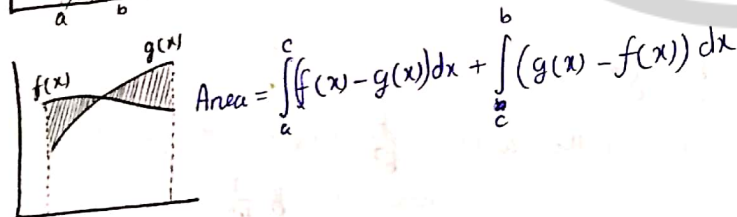 a b
g(x)
f(x)
Area = ∫_a^c (f(x) - g(x)) dx + ∫_c^b (g(x) - f(x)) dx